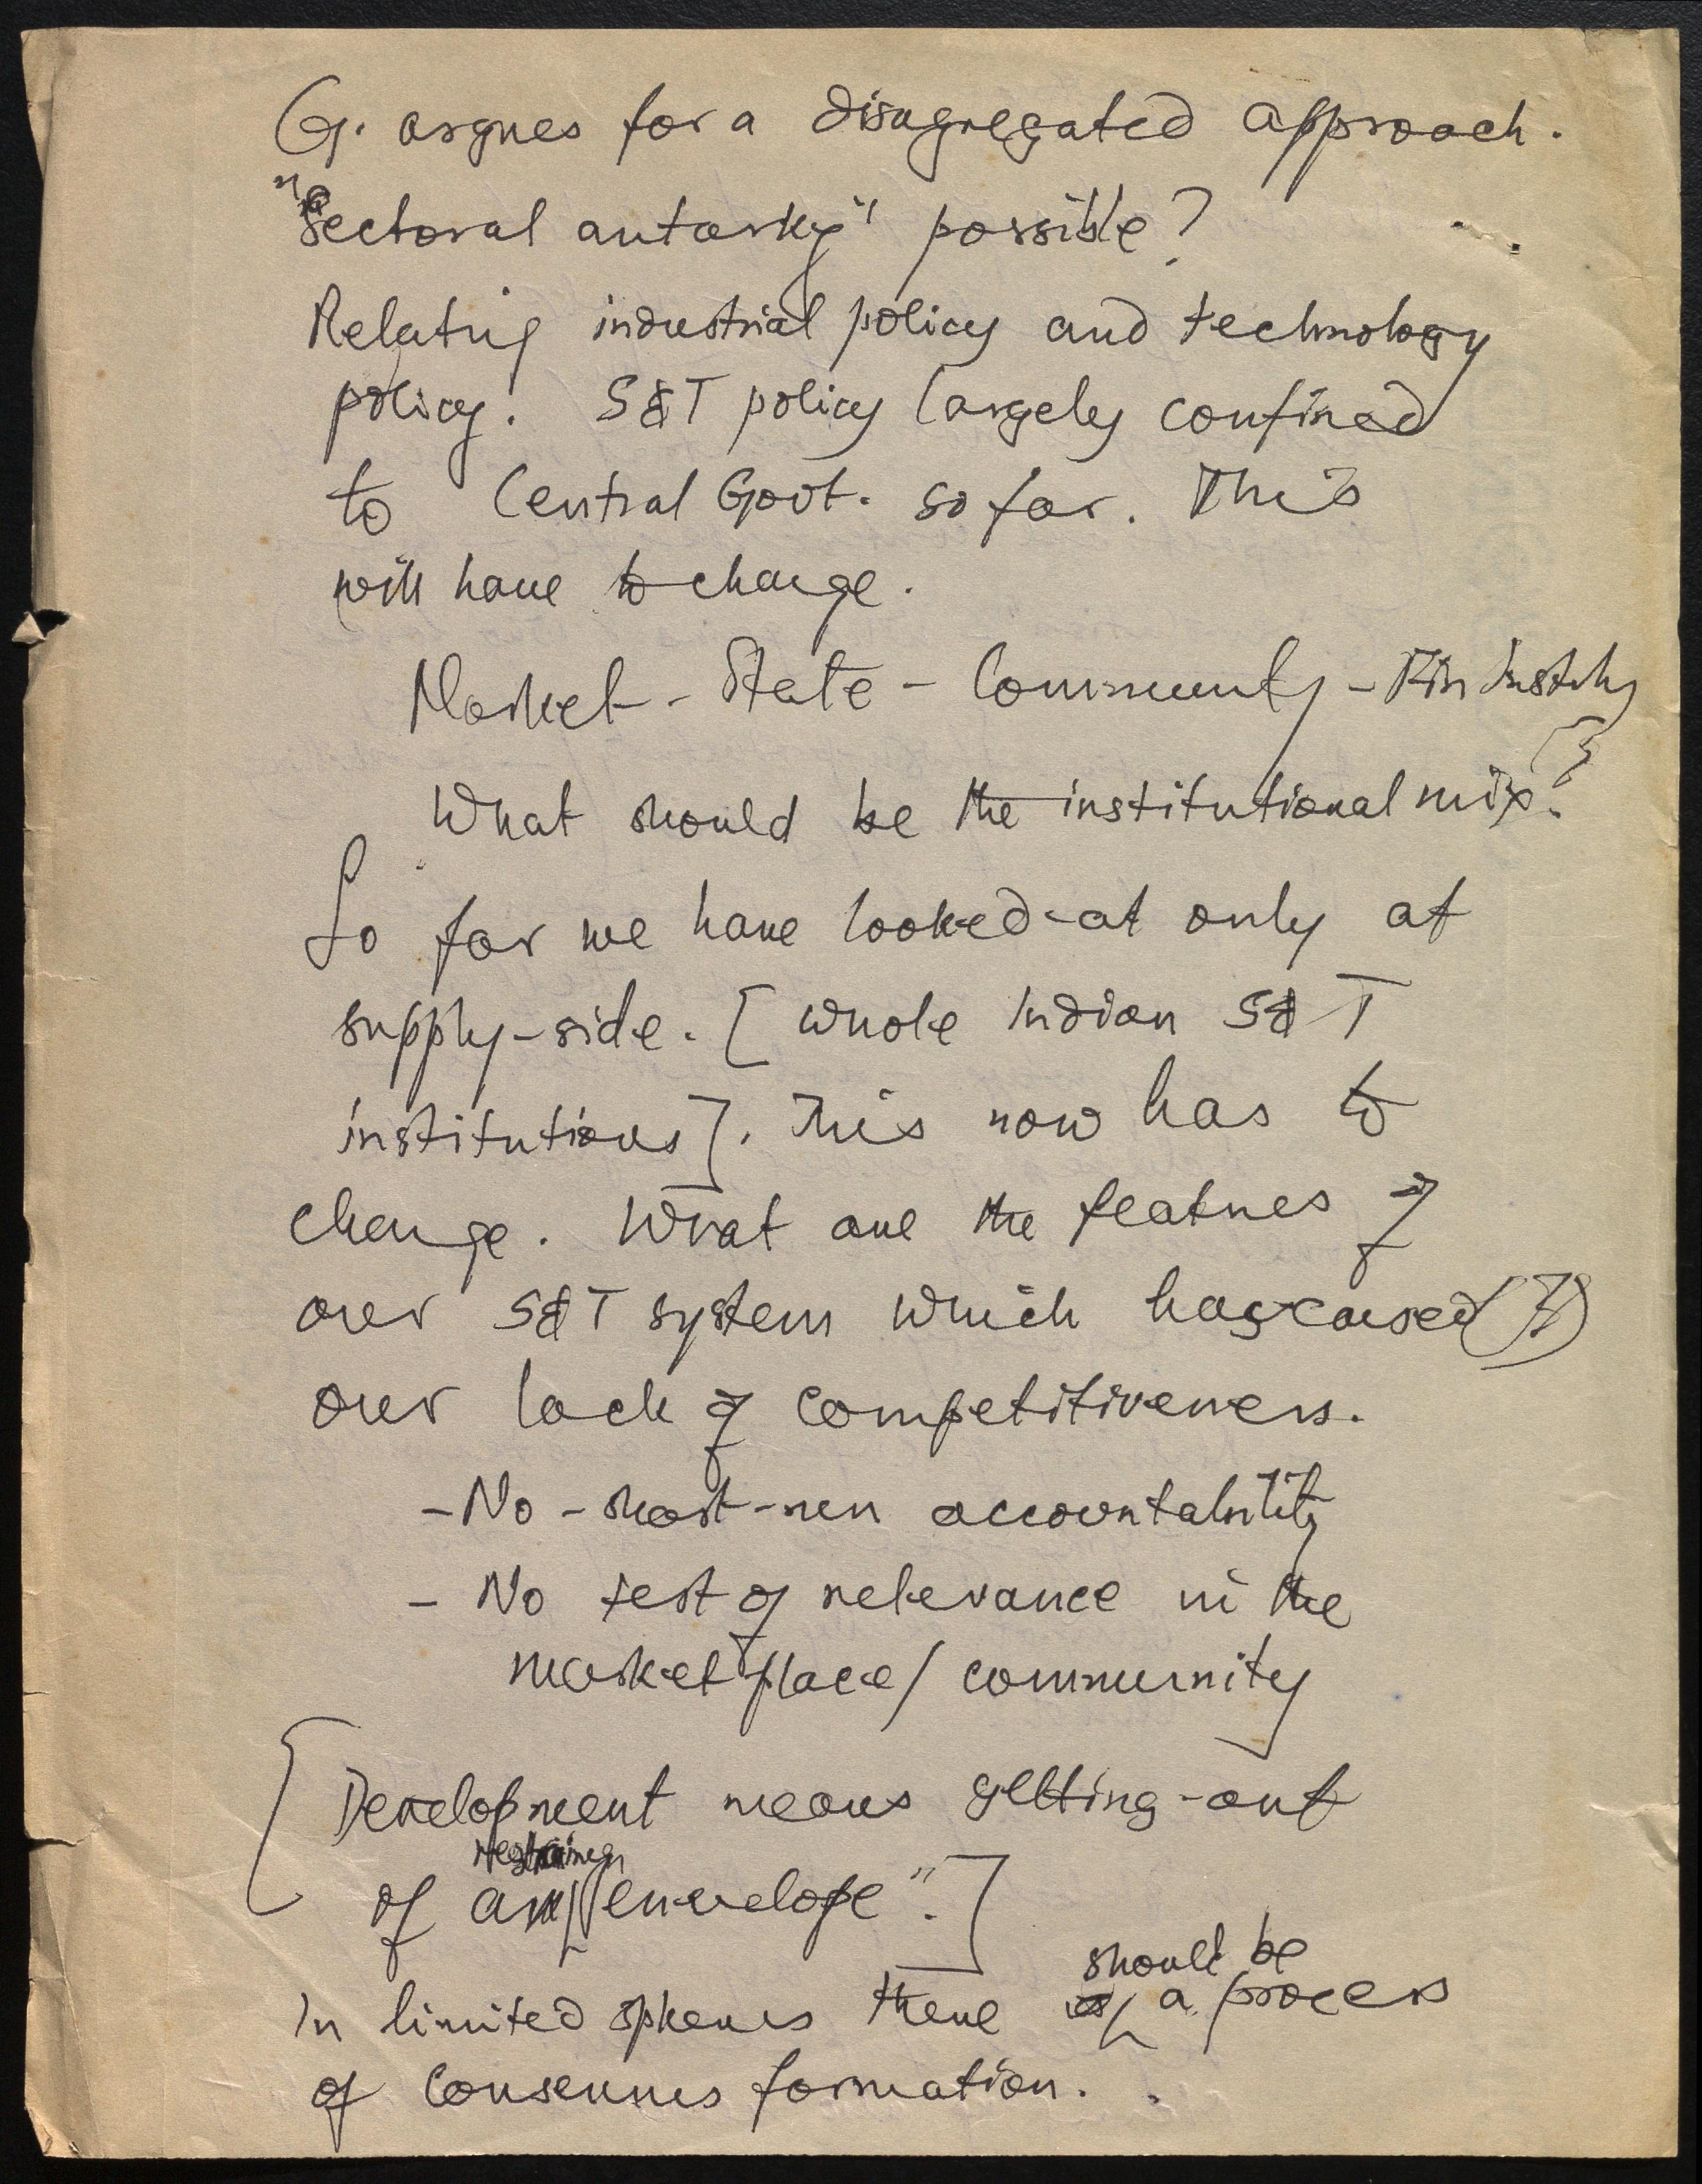 G. argues for a disagregated approach.
"Sectoral autarky" possible?
Relating industrial policy and technology
policy. S&T policy largely confined
to Central Govt. so far. This
will have to change.
Market - State - Community - Fin
What should be the institutional mix?
So far we have looked-at only at
supply-side. [Whole Indian S&T
institutions]. This now has to
change. What are the features of
our S&T system which has caused (?)
our lack of competitiveness.
- No - short-run accountability
- No test of relevance in the
market place / community
[Development means getting-out
of envelope".]
should be
In limited spheres there a process
of consensus formation.